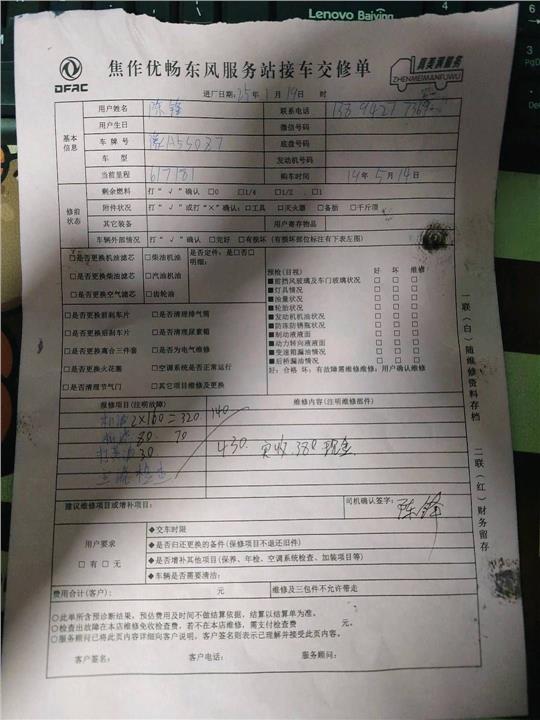 Lenovo
焦作优畅东风服务站接车交修单
DFAC
真美满服务
ZHENMEIMANFUWU
进厂日期:25年1月19日 时
基本信息
用户姓名 陈锋 联系电话
用户生日 微信号码
车牌号 底盘号码
车型 发动机号码
当前里程 617181 购车时间 14年5月14日
修前状态
剩余燃料 打“√”确认 □0 □1/4 □1/2 □1
附件状况 打“√”或打“×”确认:□工具 □灭火器 □备胎 □千斤顶
其它装备 用户寄存物品
车辆外部情况 打“√”确认 □完好 □有损坏(有损坏部位标注有下表左图)
□是否更换机油滤芯 □柴油机油 是否定件:是□否□
明细:
□是否更换柴油滤芯 □汽油机油
□是否更换空气滤芯 □齿轮油
预检(目视) 好 坏 维修
■前挡风玻璃及车门玻璃状况 □ □ □
■灯具情况 □ □ □
■油量状况 □ □ □
■轮胎状况 □ □ □
■发动机机油状况 □ □ □
■防冻防锈瓶状况 □ □ □
■制动液液面 □ □ □
■动力转向液液面 □ □ □
■变速箱漏油情况 □ □ □
■后桥漏油情况 □ □ □
好:合格 坏:有故障需维修维修:用户确认维修
□是否更换前刹车片 □是否清理排气筒
□是否更换后刹车片 □是否清理尿素箱
□是否更换离合三件套 □是否为电气维修
□是否更换火花塞 □空调系统是否正常运行
□是否清理节气门 □其它项目维修及更换
报修项目(注明故障) 维修内容(注明维修部件)
机油 2×160=320 140
机滤 80 70
30
430 实收 380 现金
建议维修项目或增补项目: 司机确认签字: 陈锋
用户要求
□有 □无
◆交车时限
◆是否归还更换的备件(保修项目不退还旧件)
◆是否增补其他项目(保养、年检、空调系统检查、加装项目等)
◆车辆是否需要清洁:
费用合计(客户): 元 维修及三包件不允许带走
○此单所含预诊断结果,预估费用及时间不做结算依据,结算以结算单为准。
○检查出故障在本店维修免收检查费,若不在本店维修,需支付检查费 元。
○服务顾问已将此页内容详细向客户说明,客户签名则表示已理解并接受此页内容。
客户签名: 客户电话: 服务顾问:
一联(白)随维修资料存档
二联(红)财务留存